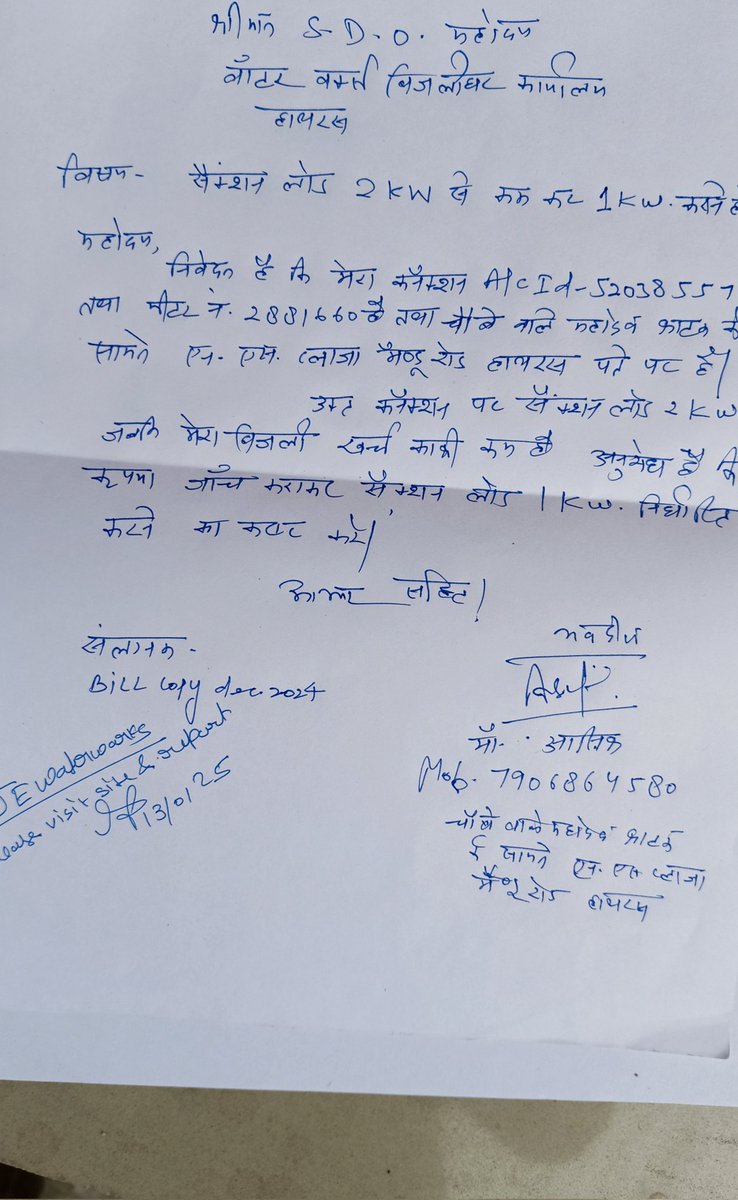 श्रीमान S-D-O. महोदय
वॉटर वर्क्स बिजलीघर कार्यालय
हाथरस
विषय- सैंक्शन लोड 2KW से कम कर 1KW. करने
महोदय,
निवेदन है कि मेरा कनैक्शन A/C Id-52038557
तथा मीटर नं. 2881660 है तथा चौबे वाले महादेव फाटक के
सामने एस. एस. प्लाजा मैण्डू रोड हाथरस पते पर है।
उक्त कनैक्शन पर सैंक्शन लोड 2KW
जबकि मेरा बिजली खर्च काफी कम है अनुरोध है कि
कृपया जाँच कराकर सैंक्शन लोड 1KW. निर्धारित
करने का कष्ट करें।
आभार सहित।
संलग्नक-
Bill Copy dec. 2024
JE waterworks
visit site & report
13/01/25
भवदीय
मौ. आसिफ
Mob. 7906864580
चौबे वाले महादेव फाटक
के सामने एस. एस. प्लाजा
मैण्डू रोड हाथरस